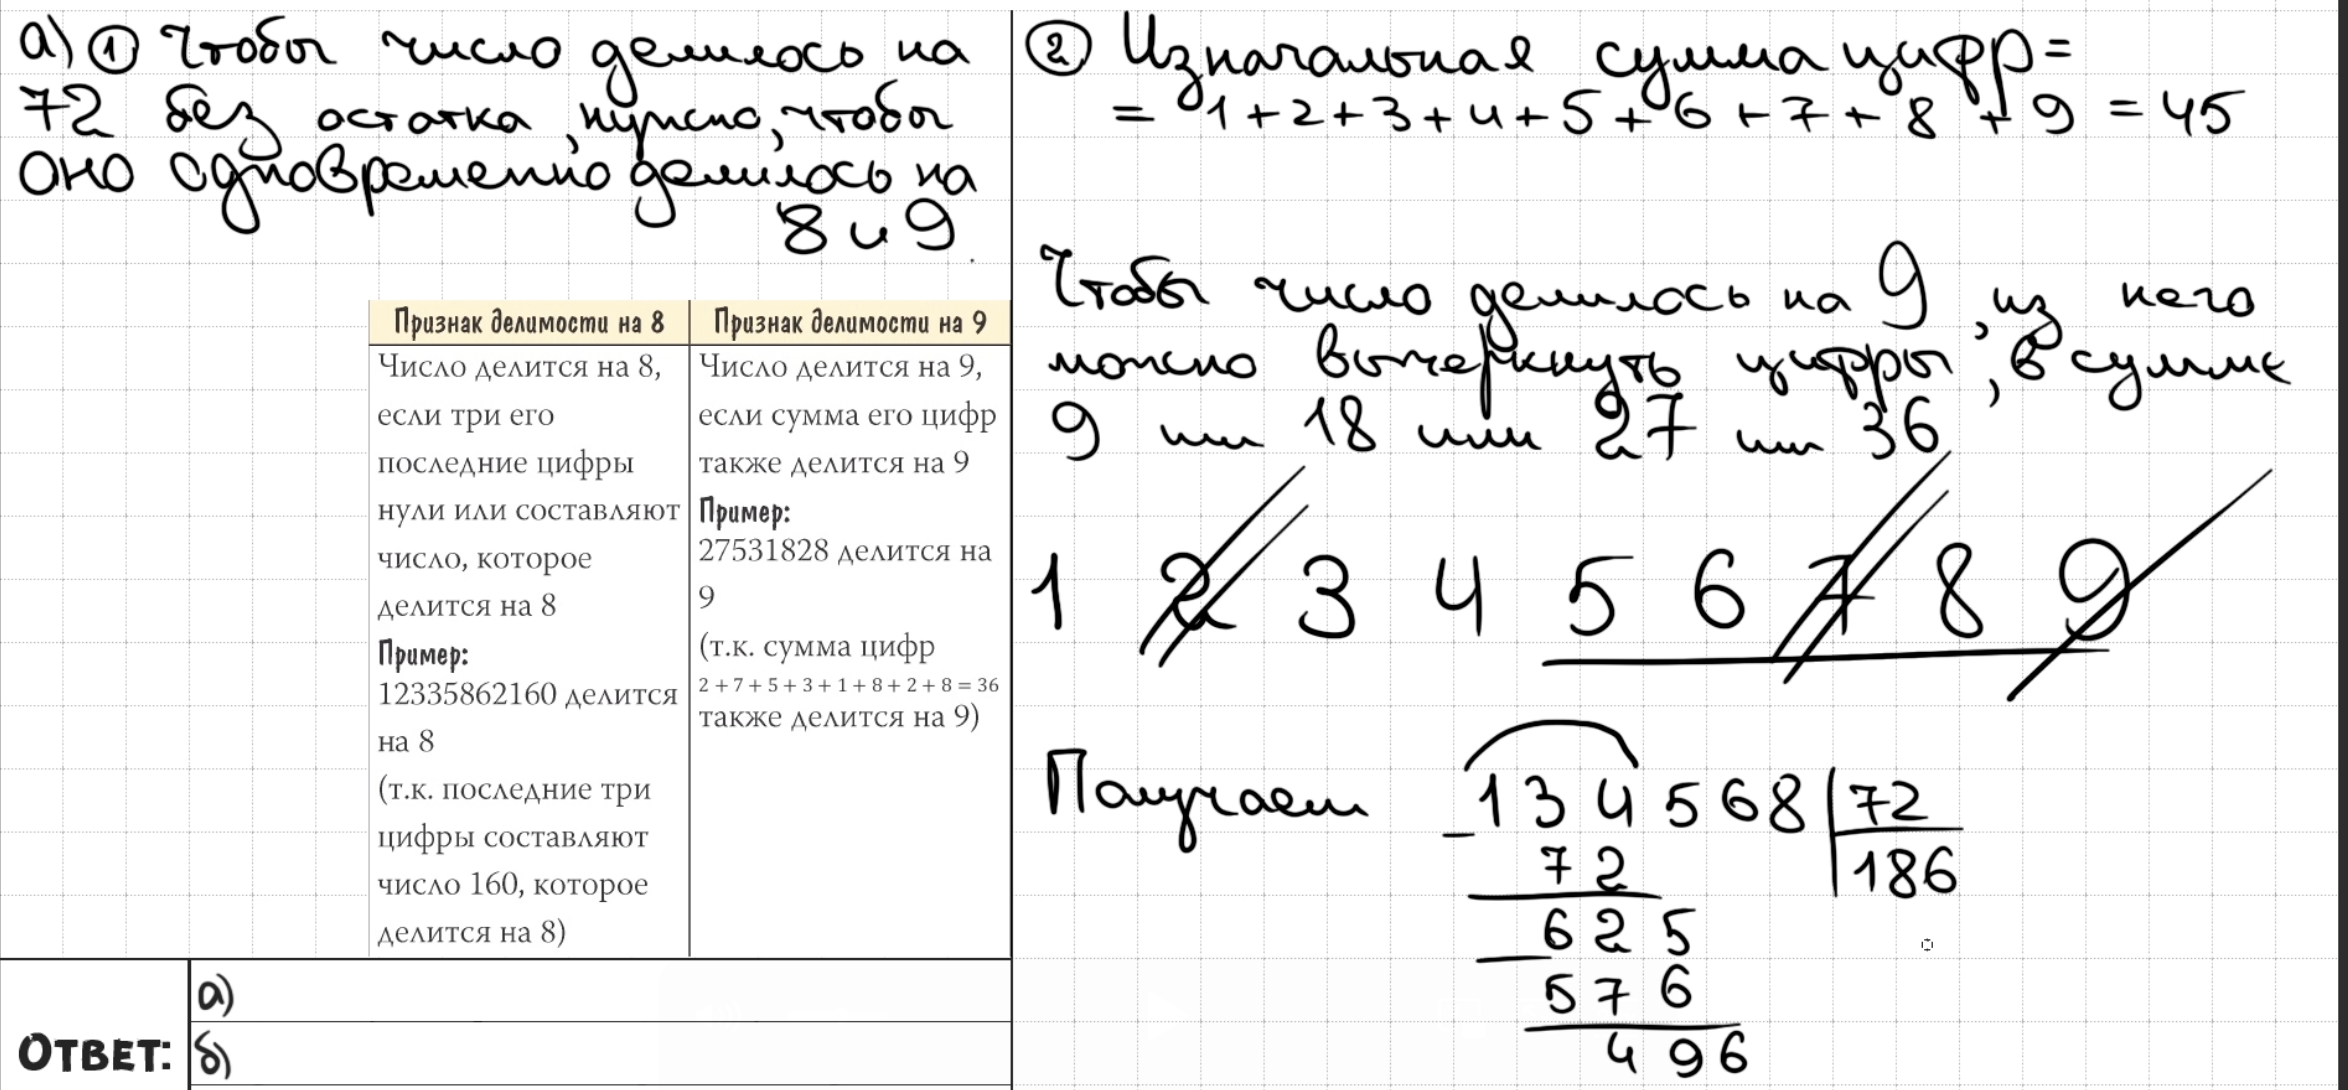 а) ① Чтобы число делилось на
72 без остатка, нужно, чтобы
оно одновременно делилось на
8 и 9.
Признак делимости на 8
Число делится на 8,
если три его
последние цифры
нули или составляют
число, которое
делится на 8
Пример:
12335862160 делится
на 8
(т.к. последние три
цифры составляют
число 160, которое
делится на 8)
Признак делимости на 9
Число делится на 9,
если сумма его цифр
также делится на 9
Пример:
27531828 делится на
9
(т.к. сумма цифр
2 + 7 + 5 + 3 + 1 + 8 + 2 + 8 = 36
также делится на 9)
ОТВЕТ:
а)
б)
② Изначальная сумма цифр =
= 1 + 2 + 3 + 4 + 5 + 6 + 7 + 8 + 9 = 45
Чтобы число делилось на 9, из него
можно вычеркнуть цифры, в сумме
9 или 18 или 27 или 36
1 2 3 4 5 6 7 8 9
Получаем 134568 | 72
72 186
625
576
496